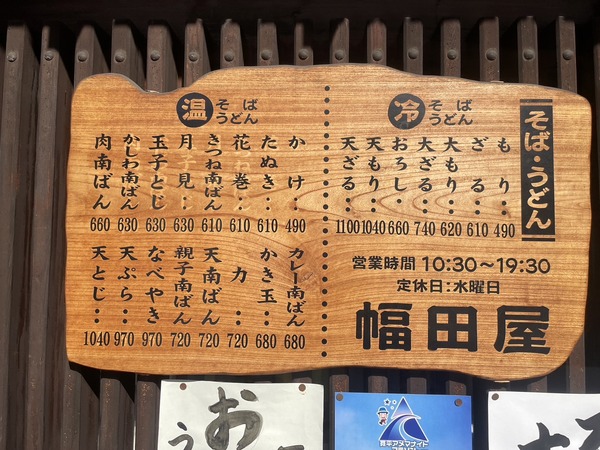 そば・うどん
冷 そば うどん
もり‥490
ざる‥610
大もり‥620
大ざる‥740
おろし‥660
天もり‥1040
天ざる‥1100
営業時間 10:30～19:30
定休日:水曜日
幅田屋
温 そば うどん
かけ‥490
たぬき‥610
花巻‥610
きつね南ばん610
月見‥630
玉子とじ630
かしわ南ばん630
肉南ばん660
カレー南ばん680
かき玉‥680
力‥720
天南ばん720
親子南ばん720
なべやき970
天ぷら‥970
天とじ‥1040
お
う